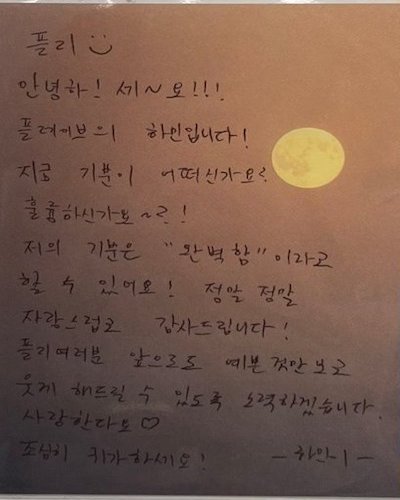 플리 :)
안녕하! 세~요!!!
플레이브의 하민입니다!
지금 기분이 어떠신가요?
훌륭하신가요~?!
저의 기분은 "완벽함"이라고
할 수 있어요! 정말 정말
자랑스럽고 감사드립니다!
플리여러분 앞으로도 예쁜것만 보고
웃게 해드릴 수 있도록 노력하겠습니다.
사랑한다요♡
조심히 귀가하세요! -하민이-